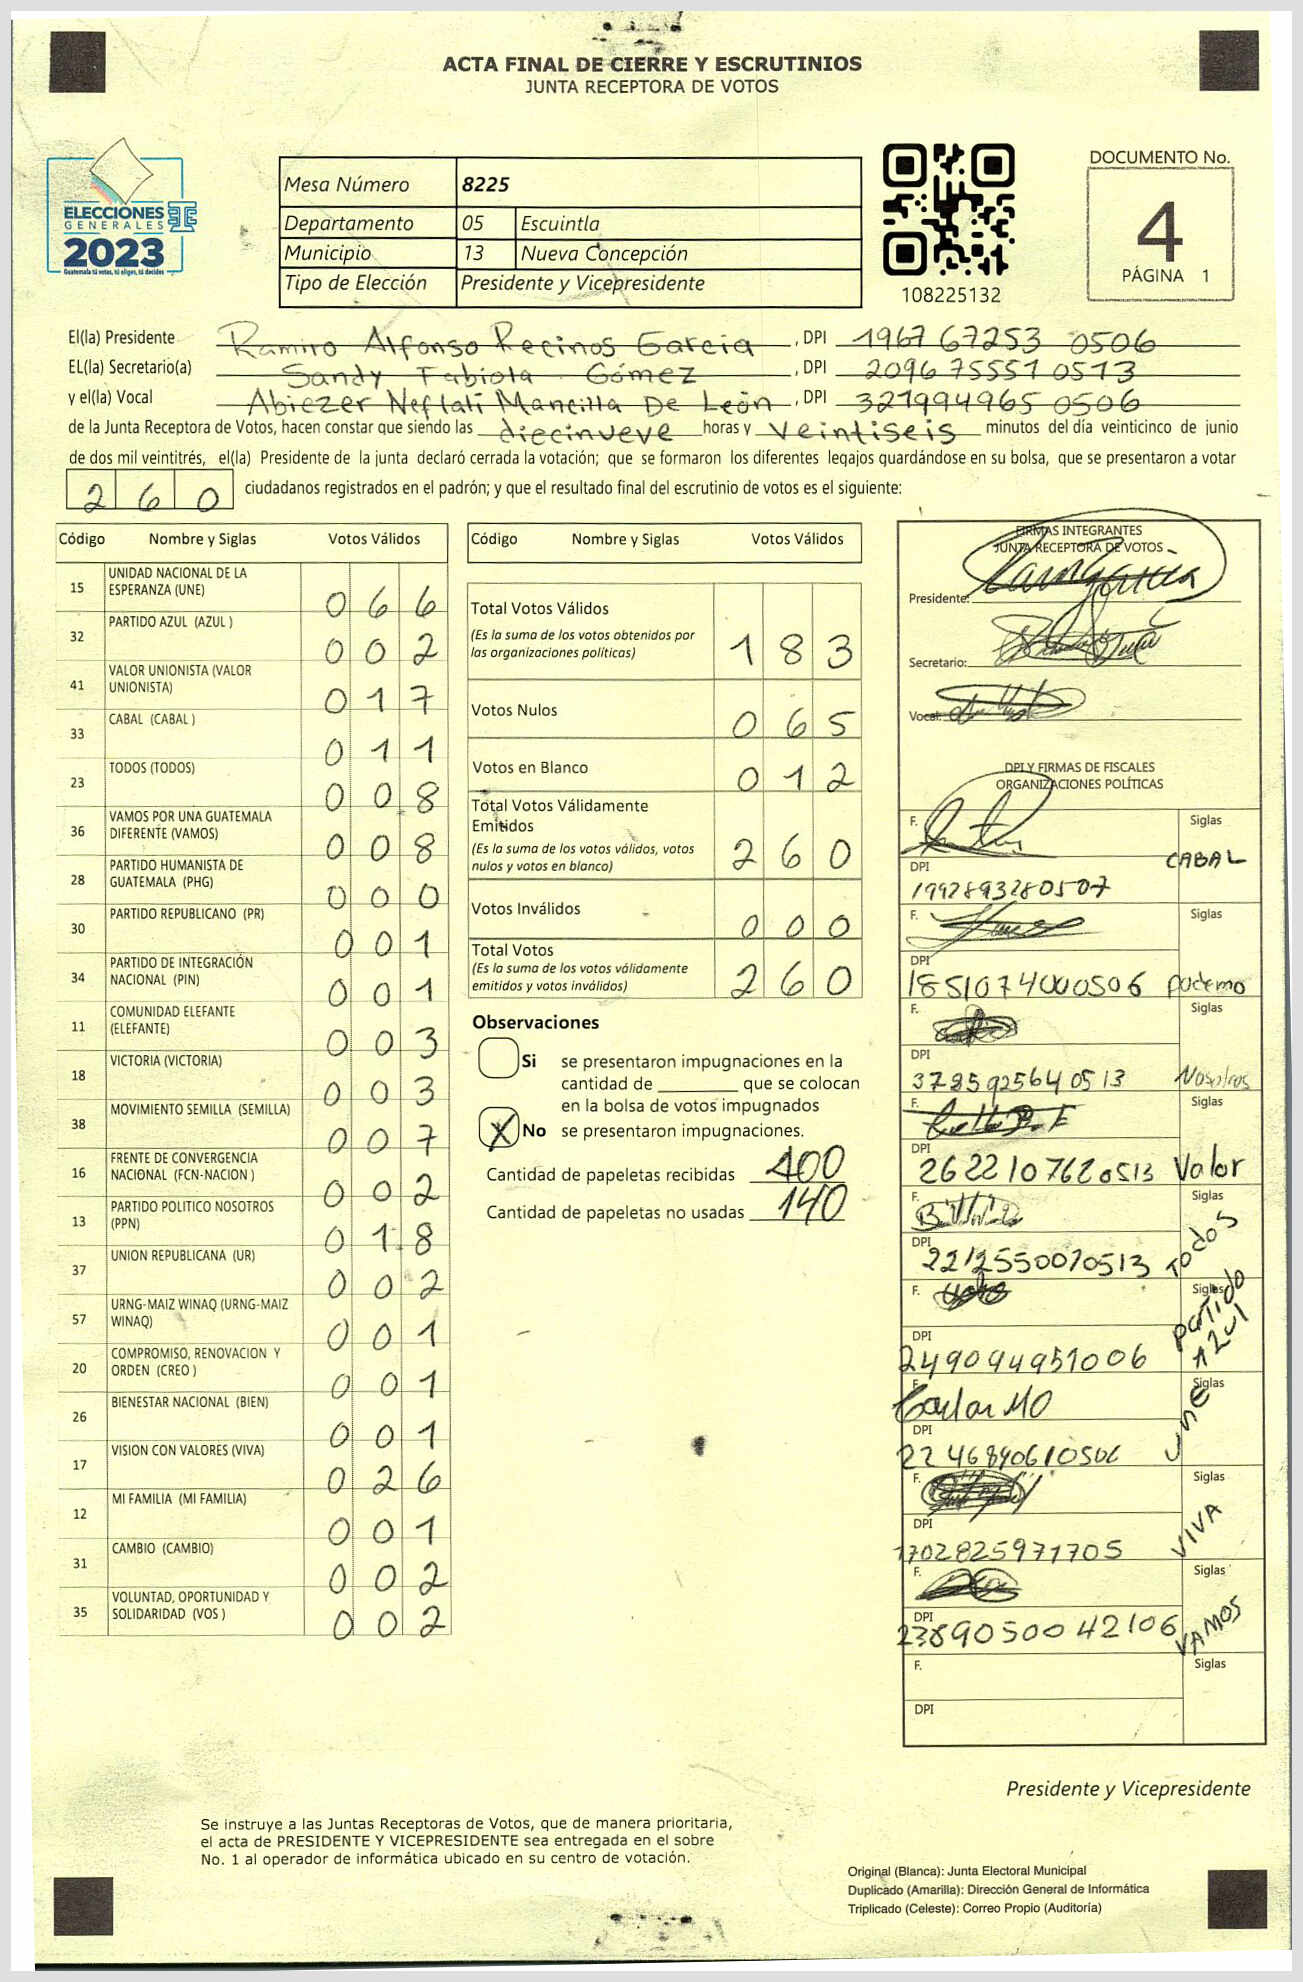 ACTA FINAL DE CIERRE Y ESCRUTINIOS
JUNTA RECEPTORA DE VOTOS
ELECCIONES
GENERALES
2023
Guatemala tú votas, tú eliges, tú decides
Mesa Número 8225
Departamento 05 Escuintla
Municipio 13 Nueva Concepción
Tipo de Elección Presidente y Vicepresidente
108225132
DOCUMENTO No.
4
PÁGINA 1
El(la) Presidente Ramiro Alfonso Recinos Garcia , DPI 1967 67253 0506
EL(la) Secretario(a) Sandy Fabiola Gómez , DPI 2096 75551 0513
y el(la) Vocal Abiezer Neftalí Mancilla De León , DPI 321994965 0506
de la Junta Receptora de Votos, hacen constar que siendo las diecinueve horas y veintiseis minutos del día veinticinco de junio
de dos mil veintitrés, el(la) Presidente de la junta declaró cerrada la votación; que se formaron los diferentes legajos guardándose en su bolsa, que se presentaron a votar
2 6 0 ciudadanos registrados en el padrón; y que el resultado final del escrutinio de votos es el siguiente:
Código Nombre y Siglas Votos Válidos
15 UNIDAD NACIONAL DE LA
ESPERANZA (UNE) 0 6 6
32 PARTIDO AZUL (AZUL ) 0 0 2
41 VALOR UNIONISTA (VALOR
UNIONISTA) 0 1 7
33 CABAL (CABAL ) 0 1 1
23 TODOS (TODOS) 0 0 8
36 VAMOS POR UNA GUATEMALA
DIFERENTE (VAMOS) 0 0 8
28 PARTIDO HUMANISTA DE
GUATEMALA (PHG) 0 0 0
30 PARTIDO REPUBLICANO (PR) 0 0 1
34 PARTIDO DE INTEGRACIÓN
NACIONAL (PIN) 0 0 1
11 COMUNIDAD ELEFANTE
(ELEFANTE) 0 0 3
18 VICTORIA (VICTORIA) 0 0 3
38 MOVIMIENTO SEMILLA (SEMILLA) 0 0 7
16 FRENTE DE CONVERGENCIA
NACIONAL (FCN-NACION ) 0 0 2
13 PARTIDO POLITICO NOSOTROS
(PPN) 0 1 8
37 UNION REPUBLICANA (UR) 0 0 2
57 URNG-MAIZ WINAQ (URNG-MAIZ
WINAQ) 0 0 1
20 COMPROMISO, RENOVACION Y
ORDEN (CREO ) 0 0 1
26 BIENESTAR NACIONAL (BIEN) 0 0 1
17 VISION CON VALORES (VIVA) 0 2 6
12 MI FAMILIA (MI FAMILIA) 0 0 1
31 CAMBIO (CAMBIO) 0 0 2
35 VOLUNTAD, OPORTUNIDAD Y
SOLIDARIDAD (VOS ) 0 0 2
Código Nombre y Siglas Votos Válidos
Total Votos Válidos
(Es la suma de los votos obtenidos por
las organizaciones políticas) 1 8 3
Votos Nulos 0 6 5
Votos en Blanco 0 1 2
Total Votos Válidamente
Emitidos
(Es la suma de los votos válidos, votos
nulos y votos en blanco) 2 6 0
Votos Inválidos 0 0 0
Total Votos
(Es la suma de los votos válidamente
emitidos y votos inválidos) 2 6 0
Observaciones
Si se presentaron impugnaciones en la
cantidad de que se colocan
en la bolsa de votos impugnados
X No se presentaron impugnaciones.
Cantidad de papeletas recibidas 400
Cantidad de papeletas no usadas 140
FIRMAS INTEGRANTES
JUNTA RECEPTORA DE VOTOS
Presidente:
Secretario:
Vocal:
DPI Y FIRMAS DE FISCALES
ORGANIZACIONES POLÍTICAS
F. Siglas
CABAL
DPI
1992893280507
F. Siglas
DPI
1851074000506 podemo
F. Siglas
DPI
3785925640513 Nosotros
F. Siglas
DPI
2622107620513 Valor
F. Siglas
DPI
2212550070513 TODOS
F. Siglas
Partido
AZUL
DPI
249094951006
F. Siglas
Carlos MO
DPI
2246840610506 UNE
F. Siglas
DPI
1702825971705 VIVA
F. Siglas
DPI
2389050042106 VAMOS
F. Siglas
DPI
Presidente y Vicepresidente
Se instruye a las Juntas Receptoras de Votos, que de manera prioritaria,
el acta de PRESIDENTE Y VICEPRESIDENTE sea entregada en el sobre
No. 1 al operador de informática ubicado en su centro de votación.
Original (Blanca): Junta Electoral Municipal
Duplicado (Amarilla): Dirección General de Informática
Triplicado (Celeste): Correo Propio (Auditoría)